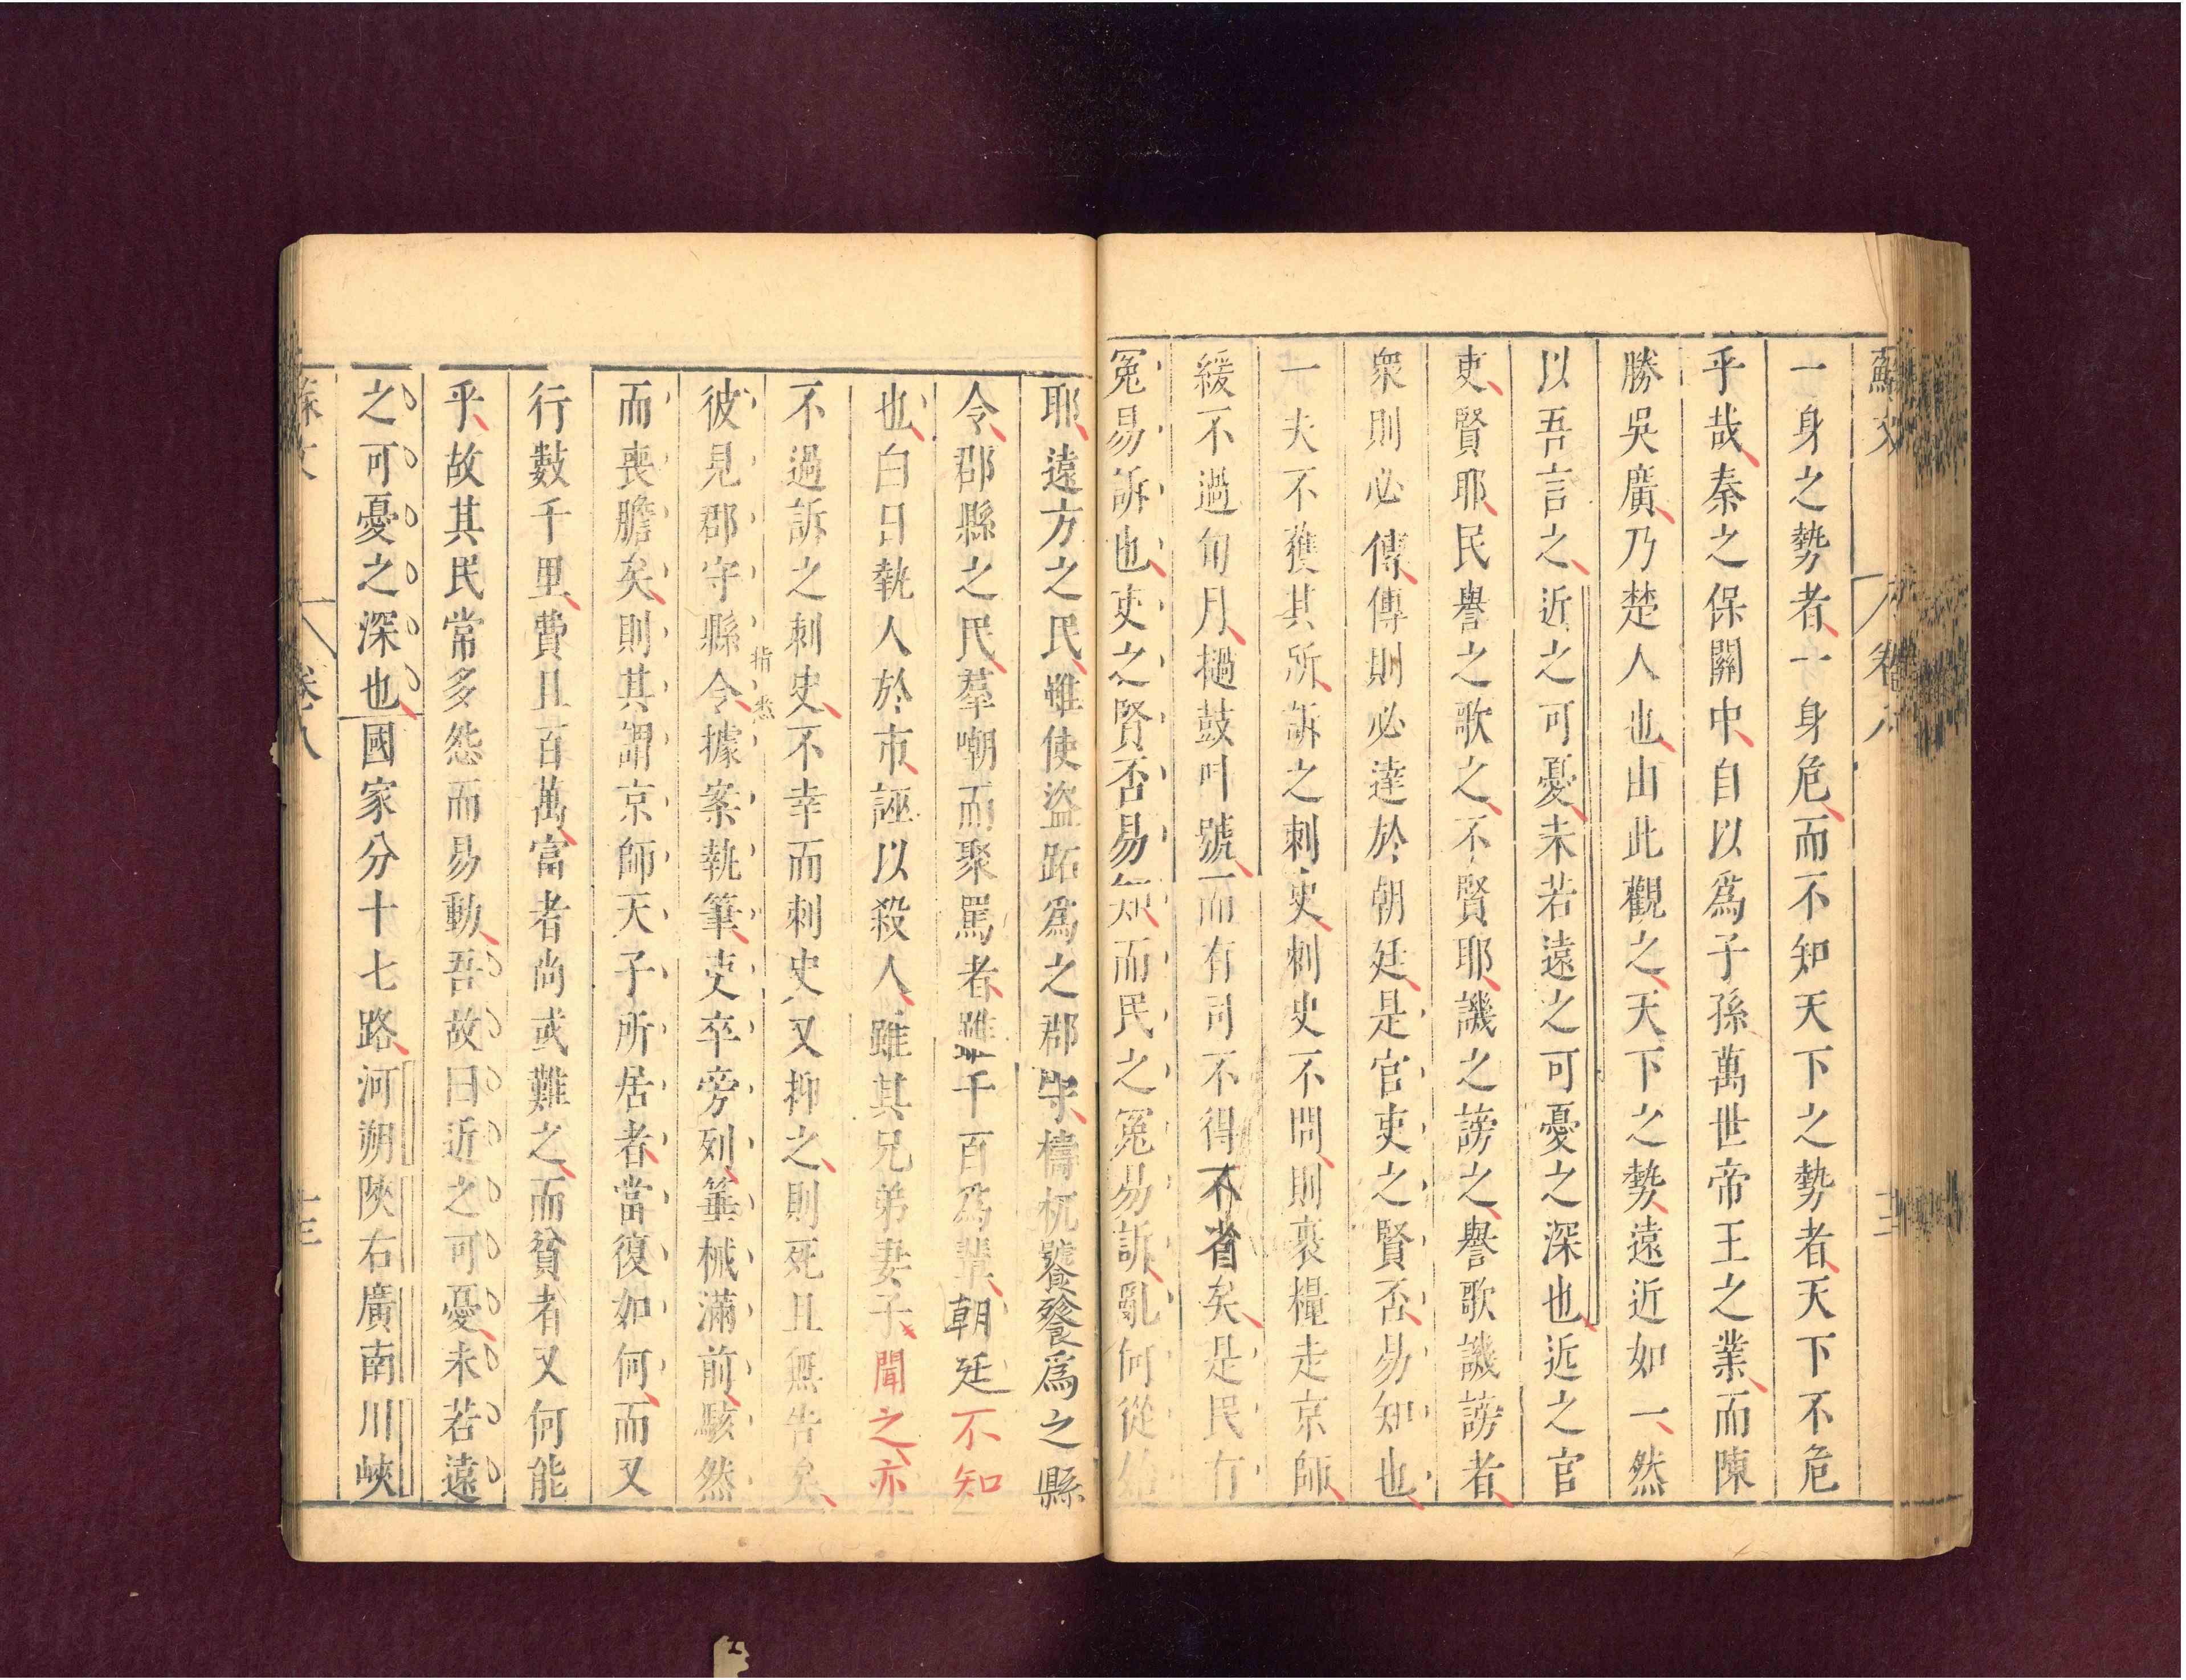 蘇文 卷八 十三
一身之勢者一身危而不知天下之勢者天下不危
乎哉秦之保關中自以爲子孫萬世帝王之業而陳
勝吳廣乃楚人也由此觀之天下之勢遠近如一然
以吾言之近之可憂未若遠之可憂之深也近之官
吏賢耶民譽之歌之不賢耶譏之謗之譽歌譏謗者
衆則必傳傳則必達於朝廷是官吏之賢否易知也
一夫不獲其所訴之刺史刺史不問則裹糧走京師
緩不過旬月撾鼓叫號而有司不得不省矣是民有
冤易訴也吏之賢否易知而民之冤易訴亂何從始
耶遠方之民雖使盜跖爲之郡守檮杌饕餮爲之縣
令郡縣之民羣嘲而聚罵者雖千百爲輩朝廷不知
也白日執人於市誣以殺人雖其兄弟妻子聞之亦
不過訴之刺史不幸而刺史又抑之則死且無告矣
彼見郡守縣令據案執筆吏卒旁列箠械滿前駭然
指悉
而喪膽矣則其謂京師天子所居者當復如何而又
行數千里費且百萬富者尚或難之而貧者又何能
乎故其民常多怨而易動吾故曰近之可憂未若遠
之可憂之深也國家分十七路河朔陝右廣南川峽
蘇文 卷八 十三